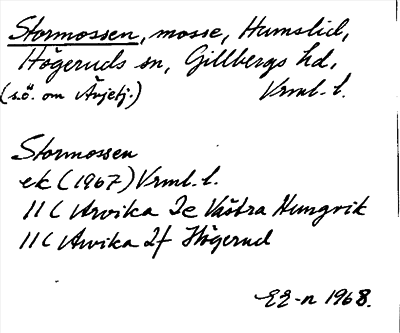 Stormossen, mosse, Humslid,
Högeruds sn, Gillbergs hd,
(s.ö. om Ärjetj.) Vrml. l.
Stormossen
ek (1967) Vrml. l.
11C Arvika 2e Västra Humgrik
11C Arvika 2f Högerud
EE-n 1968.